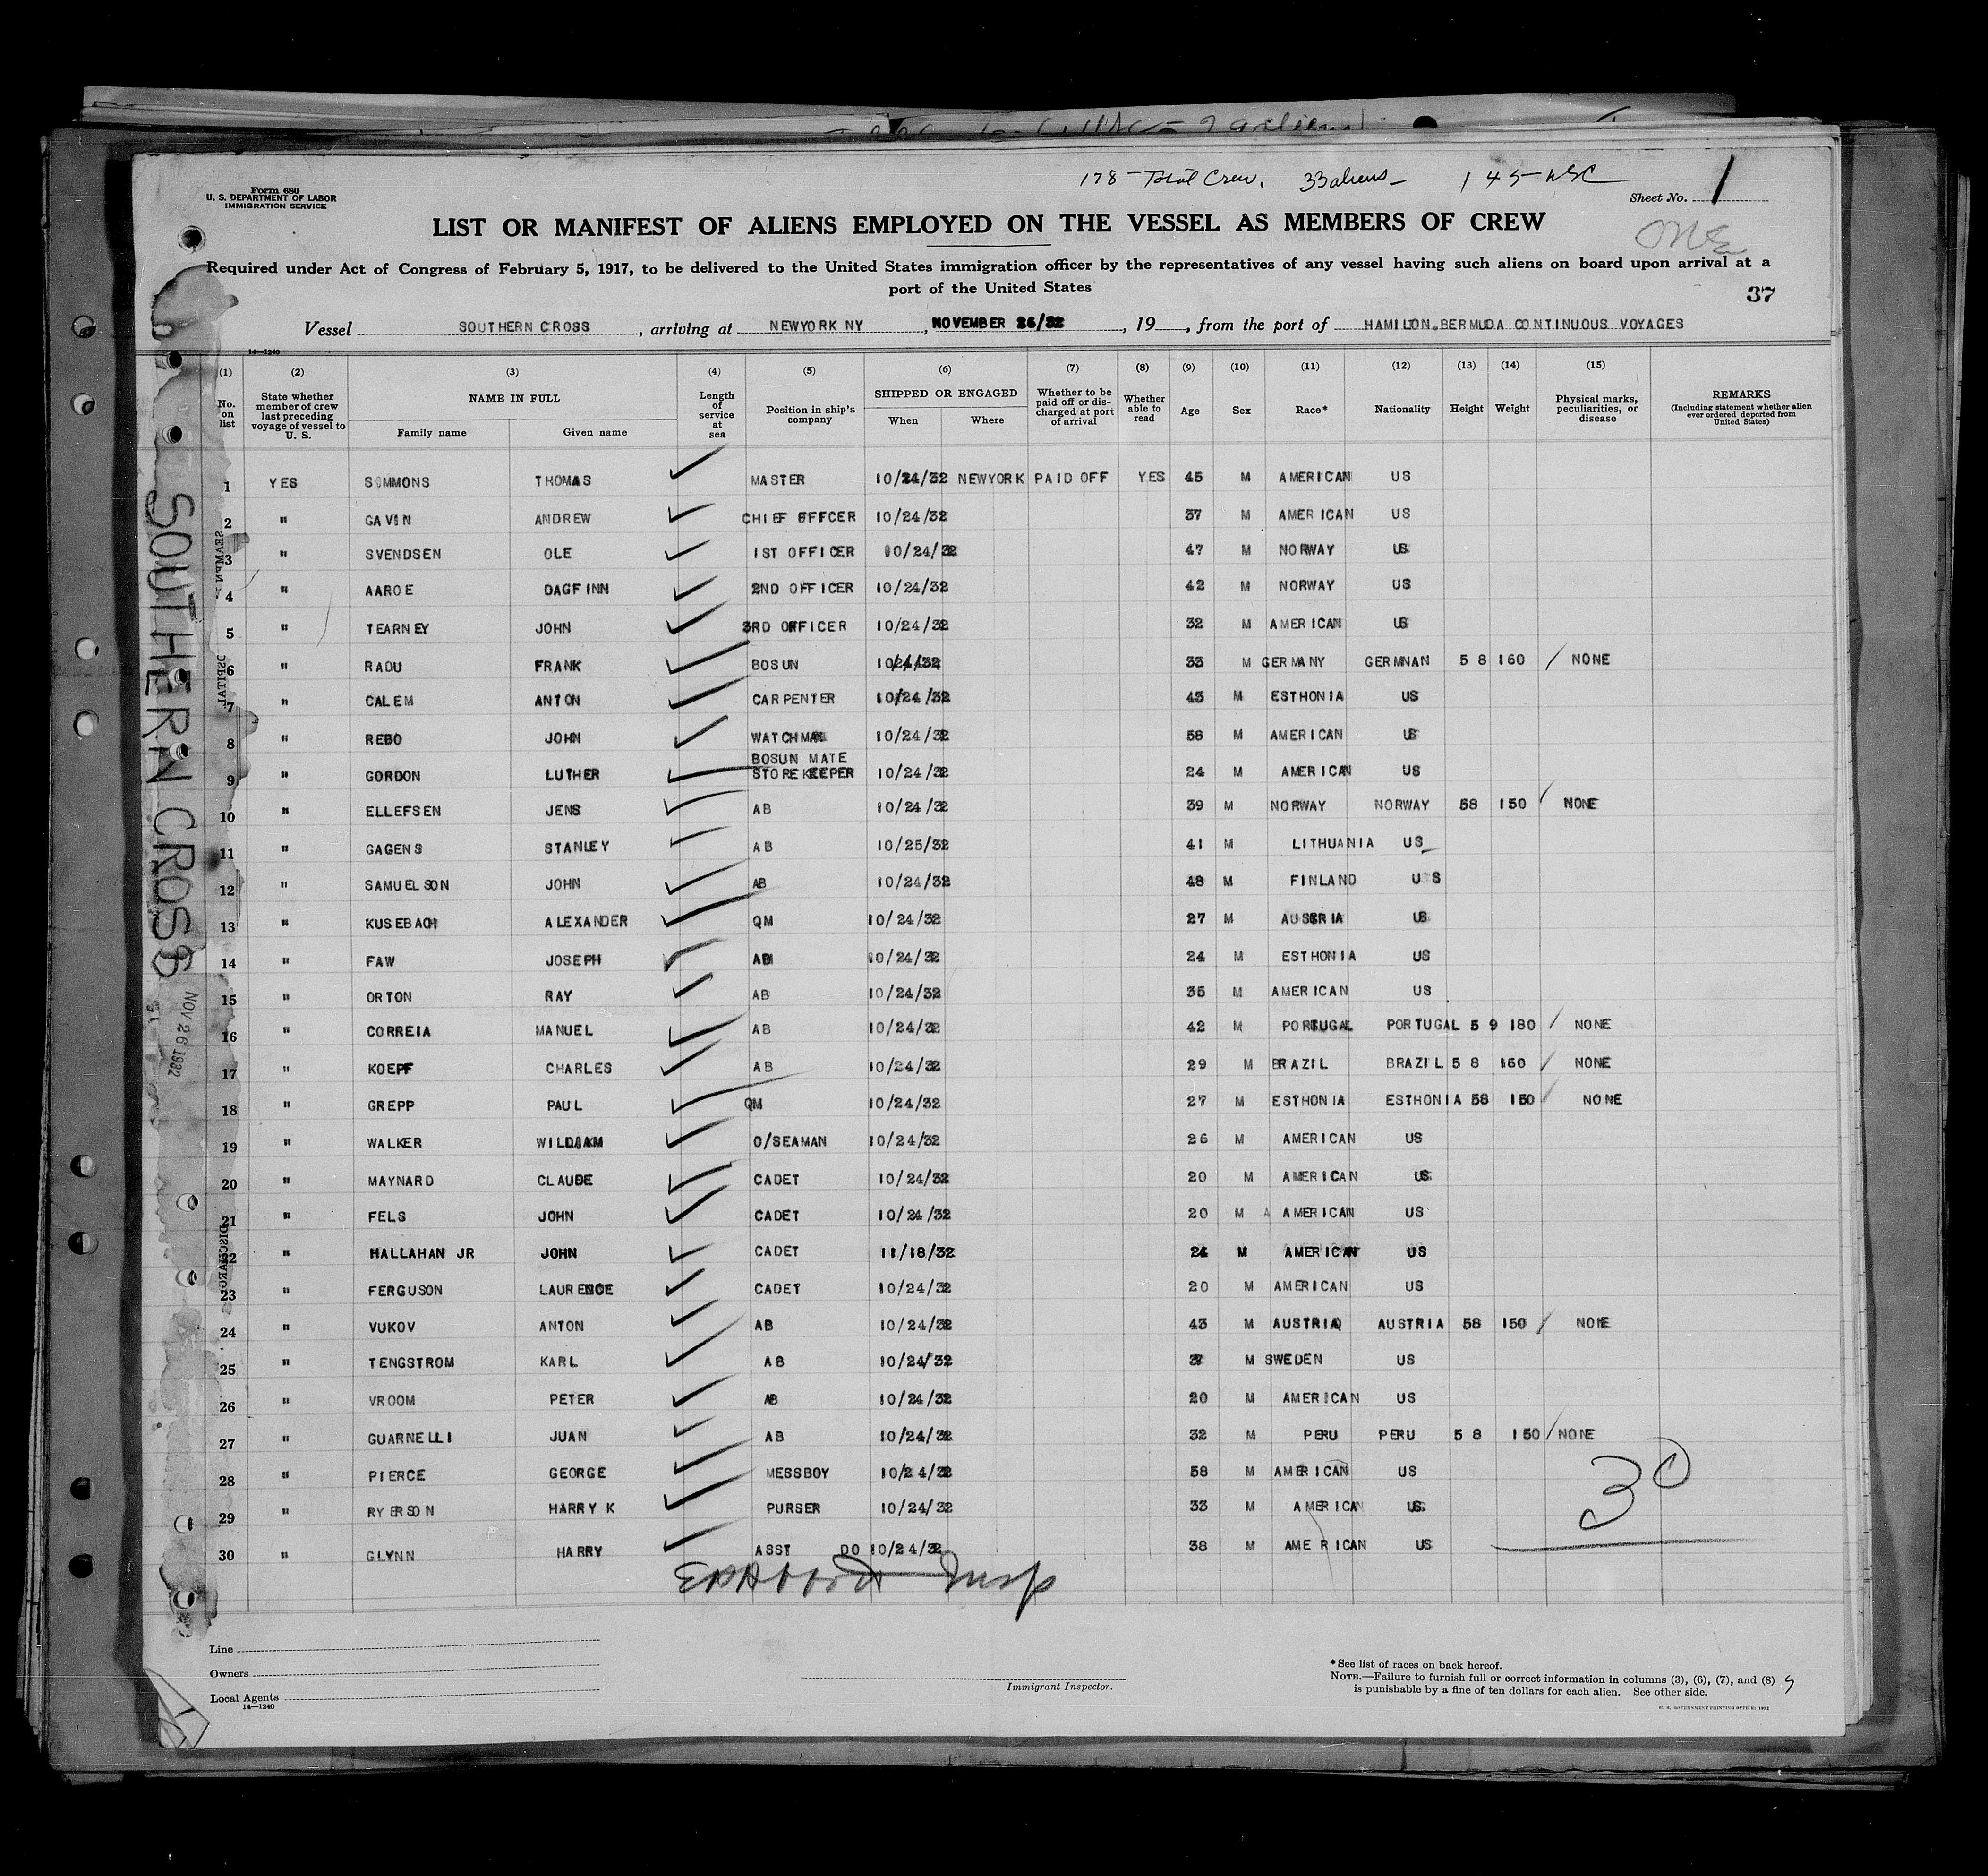 178 - Total Crew. 33 aliens - 145 - USC
Form 680
U. S. DEPARTMENT OF LABOR
IMMIGRATION SERVICE
Sheet No. 1
LIST OR MANIFEST OF ALIENS EMPLOYED ON THE VESSEL AS MEMBERS OF CREW
ONE
Required under Act of Congress of February 5, 1917, to be delivered to the United States immigration officer by the representatives of any vessel having such aliens on board upon arrival at a
port of the United States
37
Vessel SOUTHERN CROSS, arriving at NEWYORK NY, NOVEMBER 26/32, 19, from the port of HAMILTON. BERMUDA CONTINUOUS VOYAGES
14—1240
(1) (2) (3) (4) (5) (6) (7) (8) (9) (10) (11) (12) (13) (14) (15)
No. on list State whether member of crew last preceding voyage of vessel to U. S. NAME IN FULL Family name Given name Length of service at sea Position in ship's company SHIPPED OR ENGAGED When Where Whether to be paid off or discharged at port of arrival Whether able to read Age Sex Race* Nationality Height Weight Physical marks, peculiarities, or disease REMARKS (Including statement whether alien ever ordered deported from United States)
1 YES SIMMONS THOMAS MASTER 10/24/32 NEWYORK PAID OFF YES 45 M AMERICAN US
2 " GAVIN ANDREW CHIEF OFFCER 10/24/32 37 M AMERICAN US
3 " SVENDSEN OLE 1ST OFFICER 10/24/32 47 M NORWAY US
4 " AAROE DAGFINN 2ND OFFICER 10/24/32 42 M NORWAY US
5 " TEARNEY JOHN 3RD OFFICER 10/24/32 32 M AMERICAN US
6 " RADU FRANK BOSUN 10/24/32 33 M GERMANY GERMNAN 5 8 160 / NONE
7 " CALEM ANTON CARPENTER 10/24/32 43 M ESTHONIA US
8 " REBO JOHN WATCHMAN 10/24/32 58 M AMERICAN US
9 " GORDON LUTHER BOSUN MATE STOREKEEPER 10/24/32 24 M AMERICAN US
10 " ELLEFSEN JENS AB 10/24/32 39 M NORWAY NORWAY 58 150 / NONE
11 " GAGENS STANLEY AB 10/25/32 41 M LITHUANIA US
12 " SAMUELSON JOHN AB 10/24/32 48 M FINLAND US
13 " KUSEBACH ALEXANDER QM 10/24/32 27 M AUSRIA US
14 " FAW JOSEPH AB 10/24/32 24 M ESTHONIA US
15 " ORTON RAY AB 10/24/32 35 M AMERICAN US
16 " CORREIA MANUEL AB 10/24/32 42 M PORTUGAL PORTUGAL 5 9 180 / NONE
17 " KOEPF CHARLES AB 10/24/32 29 M BRAZIL BRAZIL 5 8 160 / NONE
18 " GREPP PAUL QM 10/24/32 27 M ESTHONIA ESTHONIA 58 150 / NONE
19 " WALKER WILLIAM O/SEAMAN 10/24/32 26 M AMERICAN US
20 " MAYNARD CLAUDE CADET 10/24/32 20 M AMERICAN US
21 " FELS JOHN CADET 10/24/32 20 M A AMERICAN US
22 " HALLAHAN JR JOHN CADET 11/18/32 24 M AMERICAN US
23 " FERGUSON LAURENCE CADET 10/24/32 20 M AMERICAN US
24 " VUKOV ANTON AB 10/24/32 43 M AUSTRIA AUSTRIA 58 150 / NONE
25 " TENGSTROM KARL AB 10/24/32 M SWEDEN US
26 " VROOM PETER AB 10/24/32 20 M AMERICAN US
27 " GUARNELLI JUAN AB 10/24/32 32 M PERU PERU 5 8 150 / NONE
28 " PIERCE GEORGE MESSBOY 10/24/32 58 M AMERICAN US
29 " RYERSON HARRY K PURSER 10/24/32 33 M AMERICAN US
30 " GLYNN HARRY ASST DO 10/24/32 38 M AMERICAN US
30
Insp
SOUTHERN CROSS
NOV 26 1932
Line
Owners
Local Agents
14—1240
Immigrant Inspector.
*See list of races on back hereof.
NOTE.—Failure to furnish full or correct information in columns (3), (6), (7), and (8)
is punishable by a fine of ten dollars for each alien. See other side.
U. S. GOVERNMENT PRINTING OFFICE: 1932